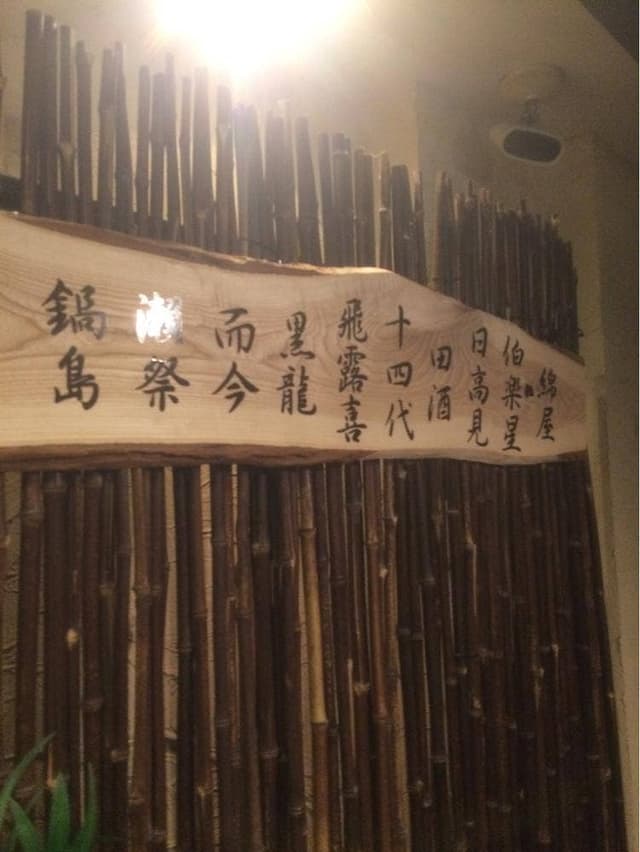 綿屋
伯楽星
日高見
田酒
十四代
飛露喜
黒龍
而今
獺祭
鍋島